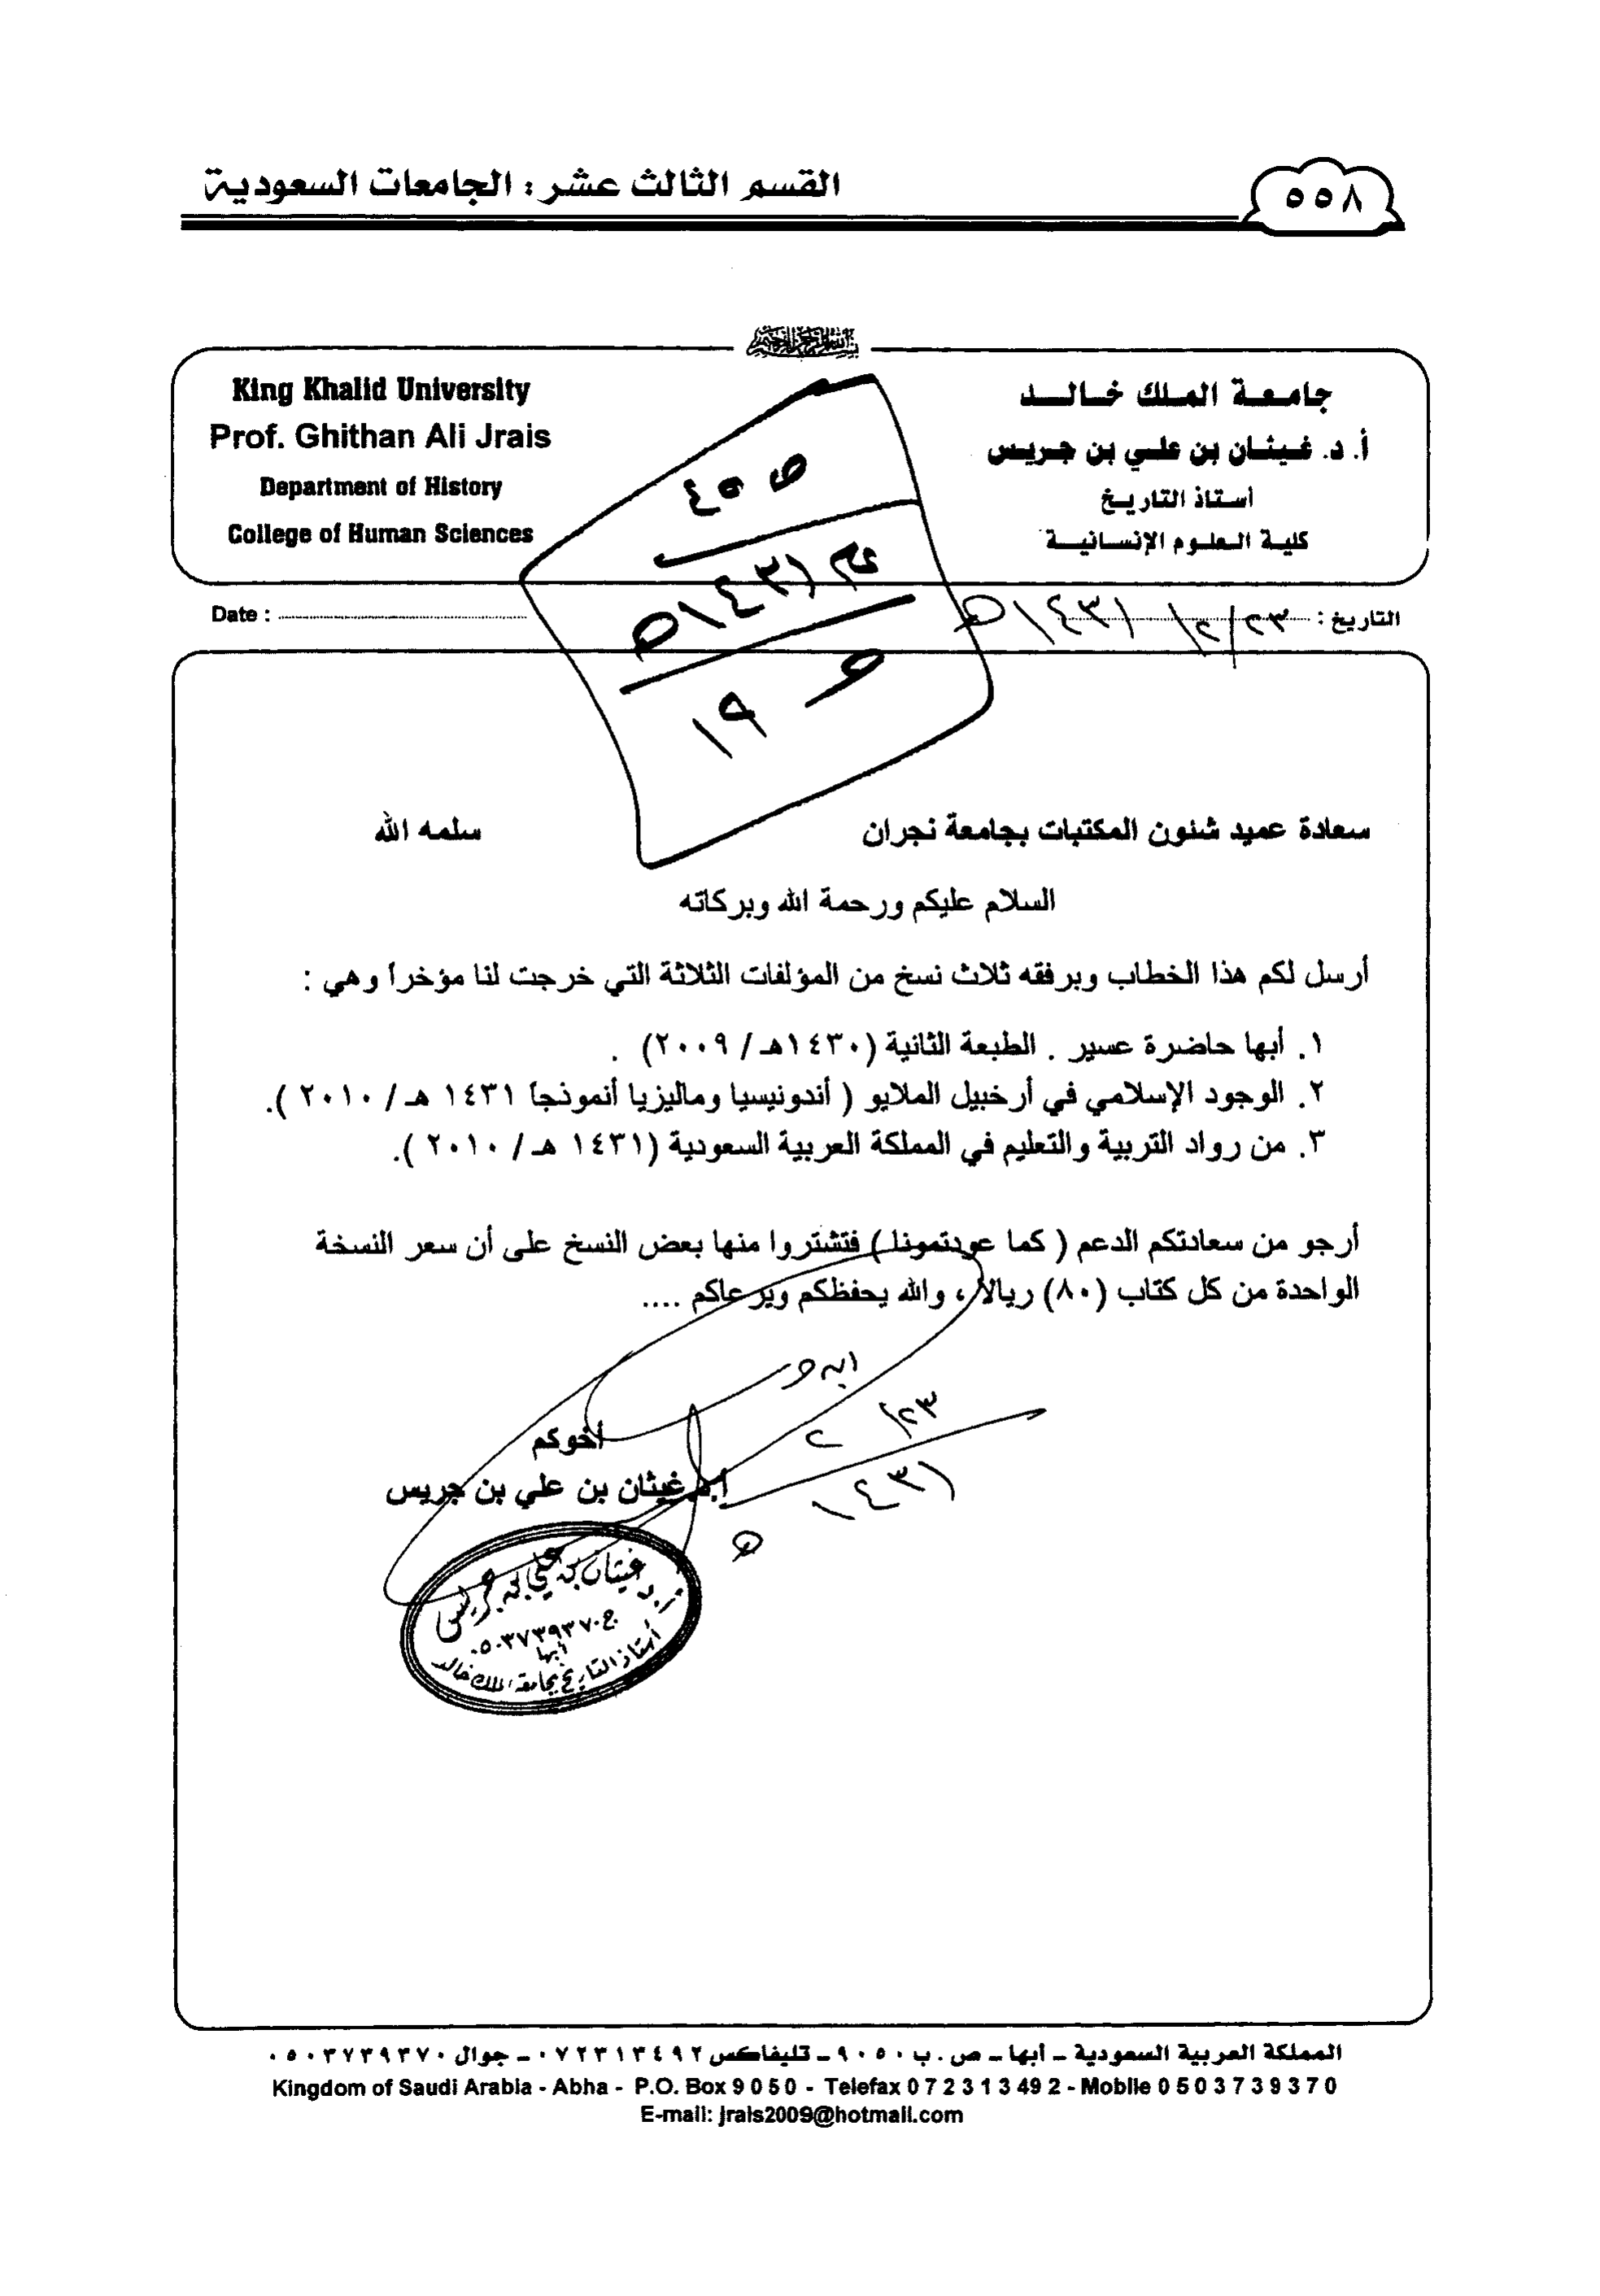 القسم الثالث عشر : الجامعات السعودية
٥٥٨
بسم الله الرحمن الرحيم
جامعة الملك خالد
أ. د. غيثان بن علي بن جريس
أستاذ التاريخ
كلية العلوم الإنسانية
King Khalid University
Prof. Ghithan Ali Jrais
Department of History
College of Human Sciences
١٤٣١هـ
١٩
التاريخ : ٢٣/٢/١٤٣١هـ
Date :
سعادة عميد شئون المكتبات بجامعة نجران سلمه الله
السلام عليكم ورحمة الله وبركاته
أرسل لكم هذا الخطاب وبرفقه ثلاث نسخ من المؤلفات الثلاثة التي خرجت لنا مؤخراً وهي :
١. أبها حاضرة عسير . الطبعة الثانية (١٤٣٠هـ / ٢٠٠٩) .
٢. الوجود الإسلامي في أرخبيل الملايو ( أندونيسيا وماليزيا أنموذجاً ١٤٣١ هـ / ٢٠١٠ ).
٣. من رواد التربية والتعليم في المملكة العربية السعودية (١٤٣١ هـ / ٢٠١٠ ).
أرجو من سعادتكم الدعم ( كما عودتمونا ) فتشتروا منها بعض النسخ على أن سعر النسخة
الواحدة من كل كتاب (٨٠) ريالا ، والله يحفظكم ويرعاكم ....
٢٣/٢
١٤٣١
هـ
أخوكم
أ.د. غيثان بن علي بن جريس
أ.د. غيثان بن علي بن جريس
ج ٠٥٠٣٧٣٩٣٧٠
أبها
أستاذ التاريخ بجامعة الملك خالد
المملكة العربية السعودية – أبها – ص . ب ٩٠٥٠ – تليفاكس ٠٧٢٣١٣٤٩٢ – جوال ٠٥٠٣٧٣٩٣٧٠
Kingdom of Saudi Arabia - Abha - P.O. Box 9 0 5 0 - Telefax 0 7 2 3 1 3 49 2 - Mobile 0 5 0 3 7 3 9 3 7 0
E-mail: jrais2009@hotmail.com